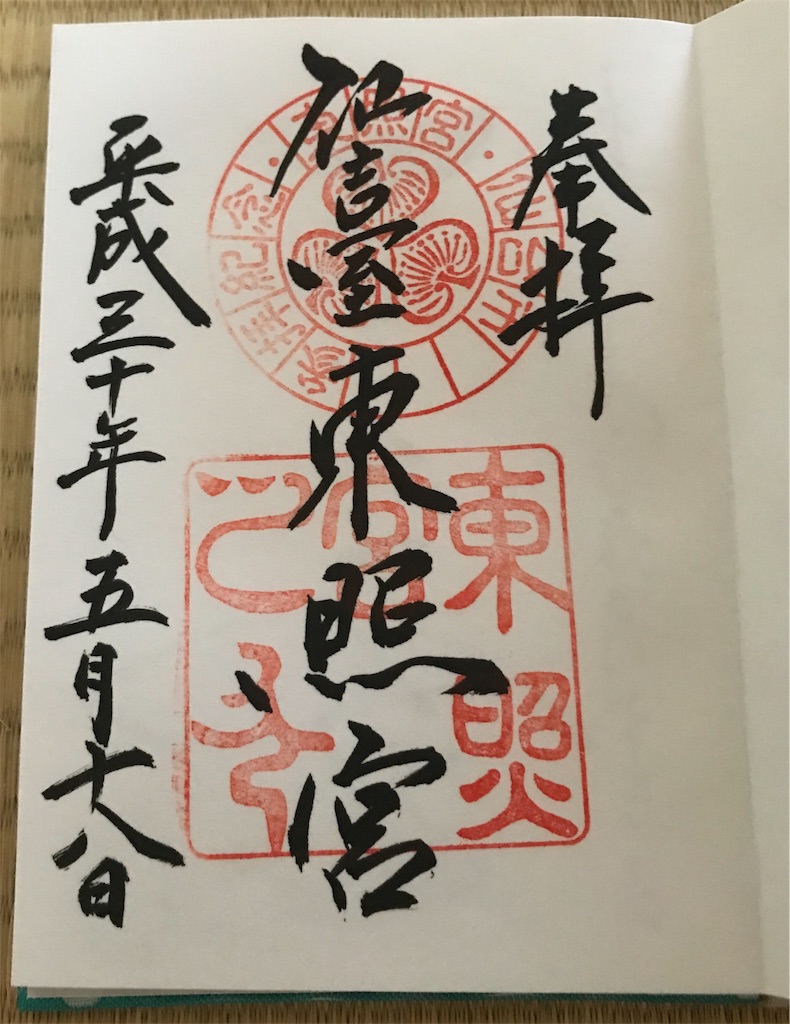 奉拝
仙臺東照宮
平成三十年五月十八日
東照宮
參拝紀念
東照宮